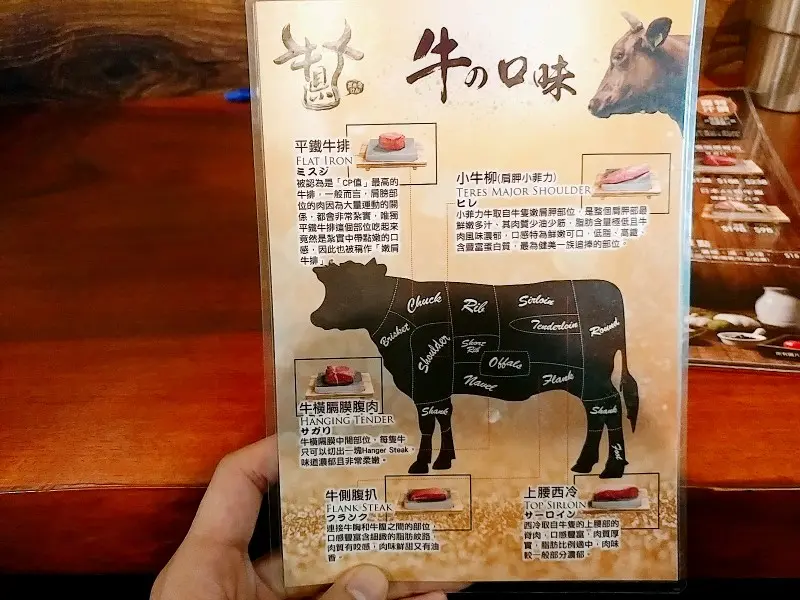 牛の口味
平鐵牛排
FLAT IRON
ミスジ
被認為是「CP值」最高的
牛排，一般而言，肩膀部
位的肉因為大量運動的關
係，都會非常紮實，唯獨
平鐵牛排這個部位吃起來
竟然是紮實中帶點嫩的口
感，因此也被稱作「嫩肩
牛排」。
小牛柳(肩胛小菲力)
TERES MAJOR SHOULDER
ヒレ
小菲力牛取自牛隻嫩肩胛部位，是整個肩胛部最
鮮嫩多汁、其肉質少油少筋，脂肪含量極低且牛
肉風味濃郁，口感特為鮮嫩可口，低脂、高鐵、
含豐富蛋白質，最為健美一族追捧的部位。
Chuck
Rib
Sirloin
Tenderloin
Round
Brisket
Shoulder
Short
Rib
Offals
Navel
Flank
Shank
Shank
牛橫膈膜腹肉
HANGING TENDER
サガリ
牛橫膈膜中間部位，每隻牛
只可以切出一塊Hanger Steak，
味道濃郁且非常柔嫩。
牛側腹扒
FLANK STEAK
フランク
連接牛胸和牛腿之間的部位，
口感豐富含細緻的脂肪紋路，
肉質有咬感，肉味鮮甜又有油
香。
上腰西冷
TOP SIRLOIN
サーロイン
西冷取自牛隻的上腰部的
脊肉，口感豐富，肉質厚
實，脂肪比例適中，肉味
較一般部分濃郁。